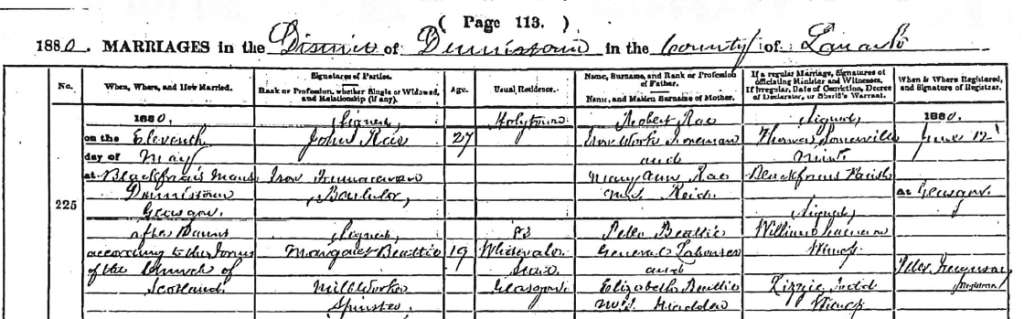 ( Page 113. )
1880. MARRIAGES in the District of Dennistoun in the County of Lanark
No.
When, Where, and How Married.
Signatures of Parties.
Rank or Profession, whether Single or Widowed, and Relationship (if any).
Age.
Usual Residence.
Name, Surname, and Rank or Profession of Father.
Name, and Maiden Surname of Mother.
If a regular Marriage, Signatures of officiating Minister and Witnesses.
If irregular, Date of Conviction, Decree of Declarator, or Sheriff's Warrant.
When & Where Registered, and Signature of Registrar.
225
1880,
on the Eleventh
day of May
at Blackfriars Manse
Dennistoun
Glasgow.
after Banns
according to the Forms
of the Church of
Scotland.
(Signed)
John Rae
Iron
Bachelor
(Signed)
Margaret Beattie
Mill Worker
Spinster
27
19
Holytown
Whitevale
Glasgow
Robert Rae
Iron Work Foreman
and
Mary Ann Rae
M.S. Reid
Peter Beattie
General Labourer
and
Elizabeth Beattie
M.S.
(Signed)
Thomas Somerville
Mint
Blackfriars Parish
(Signed)
William
Witness
Lizzie
Witness
1880.
June 12
at Glasgow
Ferguson
Registrar.